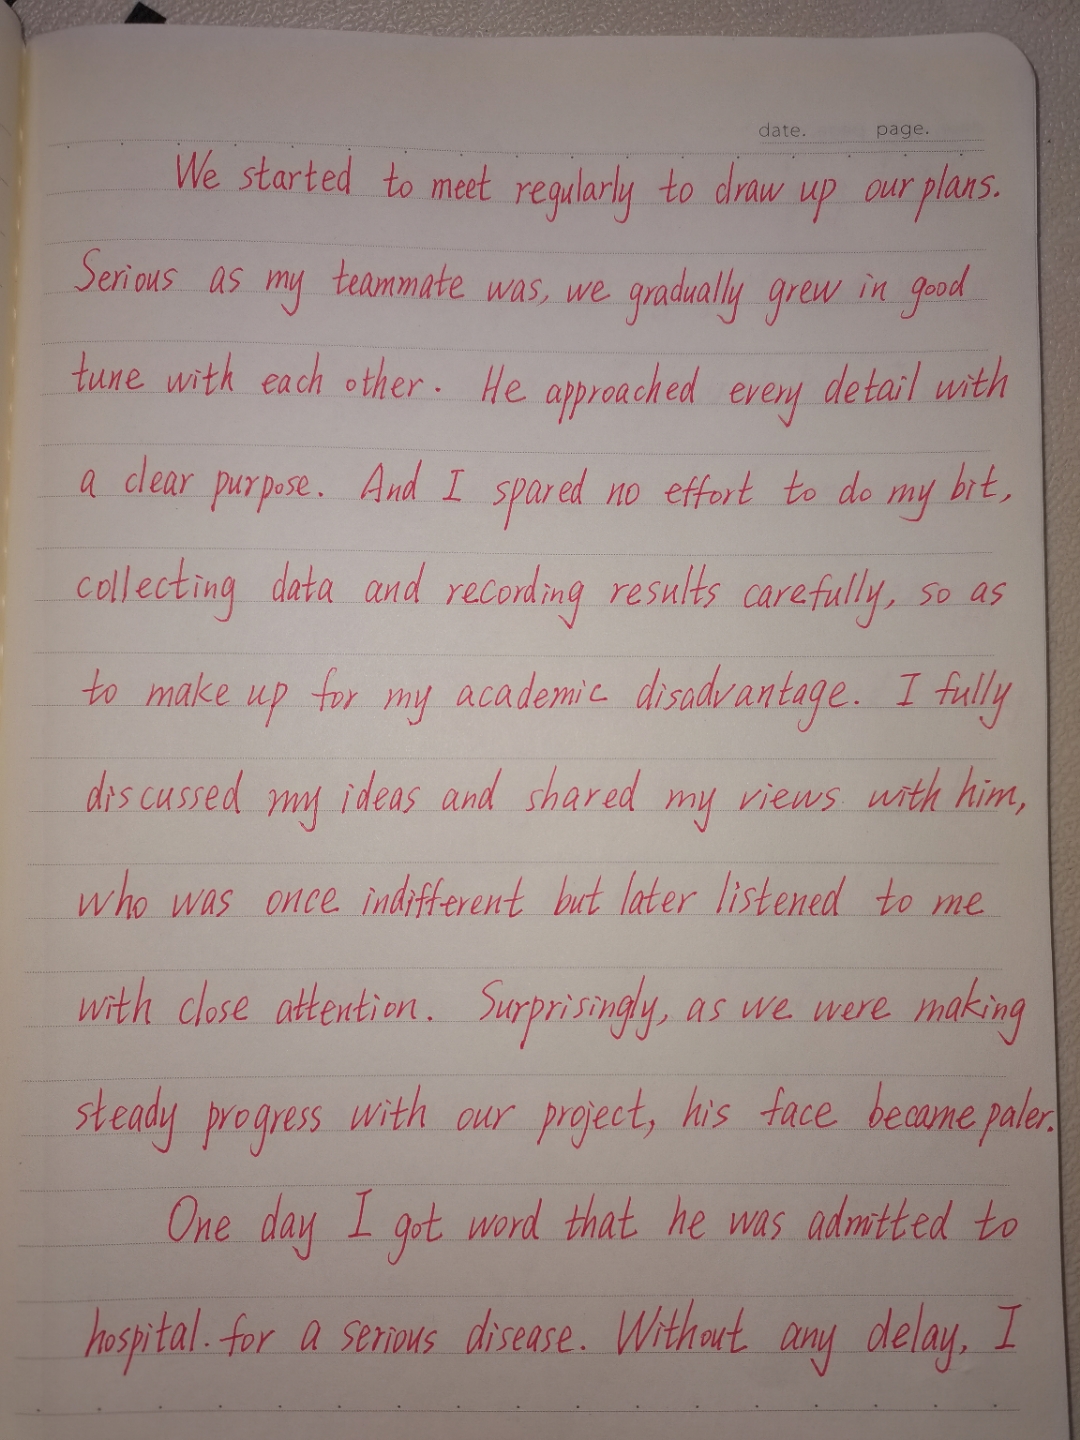 date. page.
We started to meet regularly to draw up our plans.
Serious as my teammate was, we gradually grew in good
tune with each other. He approached every detail with
a clear purpose. And I spared no effort to do my bit,
collecting data and recording results carefully, so as
to make up for my academic disadvantage. I fully
discussed my ideas and shared my views with him,
who was once indifferent but later listened to me
with close attention. Surprisingly, as we were making
steady progress with our project, his face became paler.
One day I got word that he was admitted to
hospital. for a serious disease. Without any delay, I